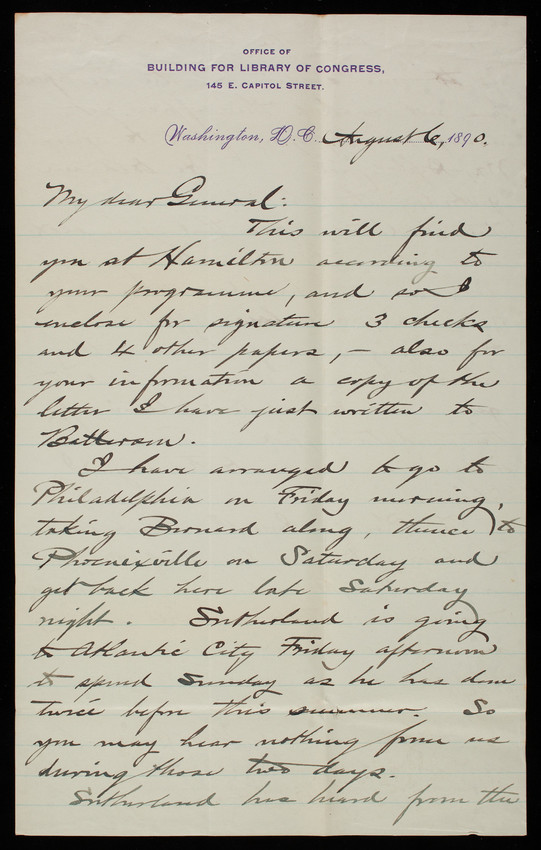 OFFICE OF
BUILDING FOR LIBRARY OF CONGRESS,
145 E. CAPITOL STREET.
Washington, D. C. August 6, 1890.
My dear General:
This will find
you at Hamilton according to
your programme, and so I
enclose for signature 3 checks
and 4 other papers, – also for
your information a copy of the
letter I have just written to
Batterson.
I have arranged to go to
Philadelphia on Friday morning,
taking Bernard along, thence to
Phoenixville on Saturday and
get back here late Saturday
night. Sutherland is going
to Atlantic City Friday afternoon
to spend Sunday as he has done
twice before this summer. So
you may hear nothing from us
during those two days.
Sutherland has heard from the